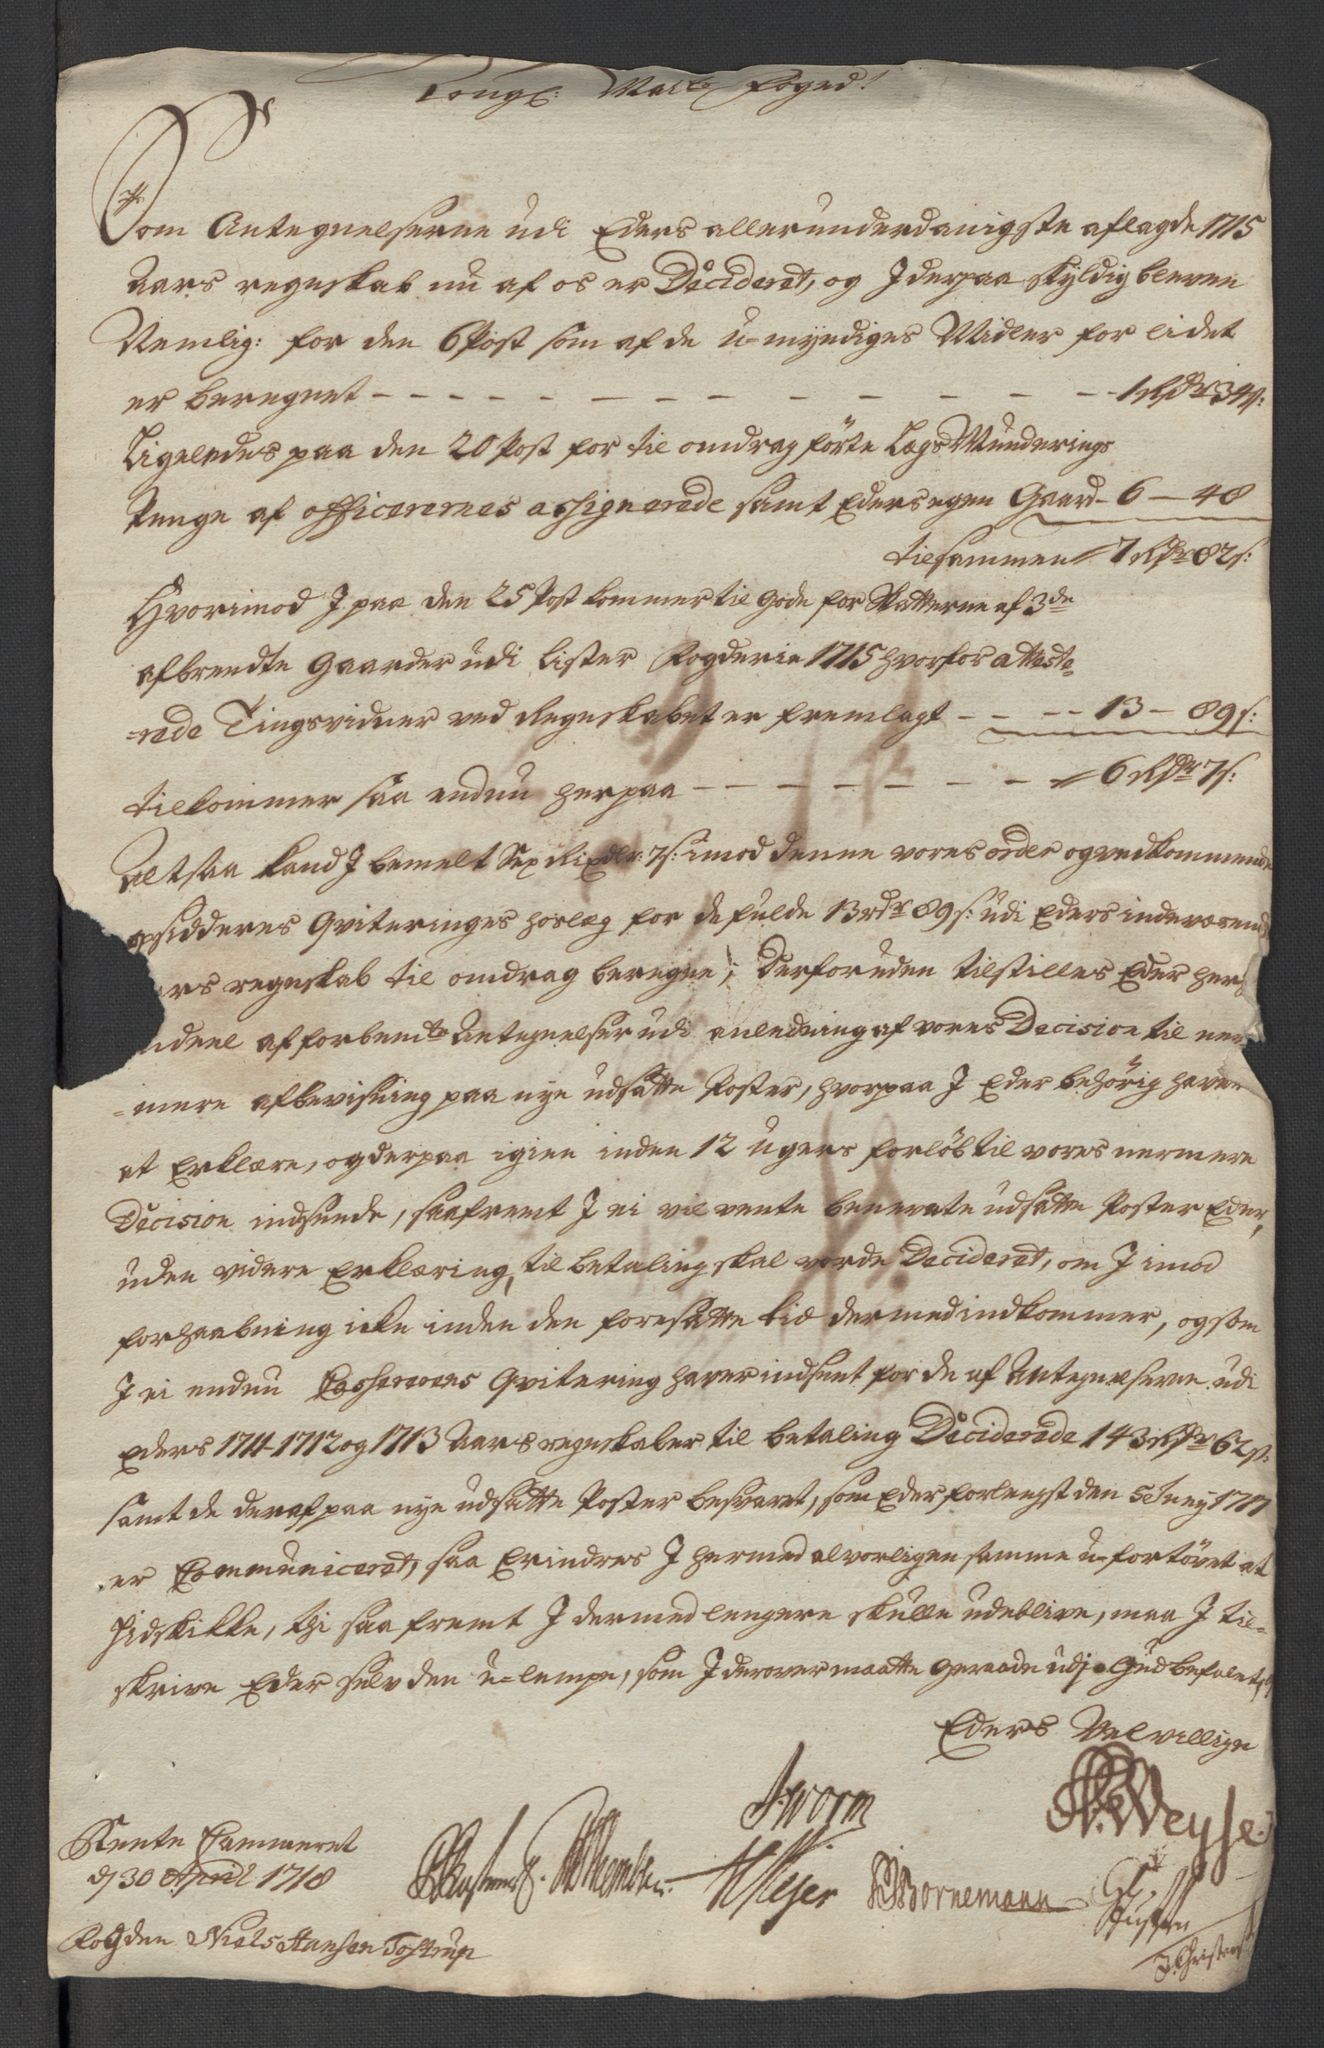 Kongl: Mayts Foged!
Som Antegnelserne udi Eders allerunderdanigste aflagde 1715
Aars regnskab nu af os er Decideret, og I derpaa skyldig bleven
Nemlig: for den 6 Post som af de u-myndiges Midler for lidet
er beregnet - - - - - - - - - - - - 1 Rdr 34 s:
Ligeledes paa den 20 Post for til omdrag förte Legs Munderings
Penge af officerernes assignerede samt Eders egen Gaard - 6 - 48
tilsammen 7 Rdr 82 s:
Hvorimod I paa den 25 Post kommer til gode for Skatterne af 3de
afbrendte Gaarder udi Lister Fogderie 1715 hvorfor atteste-
-rede Tingsvidner ved Regnskabet er fremlagt - - - - 13 - 89 s:
tilkommer saa endnu herpaa - - - - - - - 6 Rdr 7 s:
Altsaa kand I bemelt Sex Rixdlr: 7 s: imod denne vores ordre og vedkommende
opsidderes Qviteringes horlæg for de fulde 13 rdr 89 s: udi Eders indeværende
ars regnskab til omdrag beregne; Derforuden tilstilles Eder her
ndeel af forbemte Antegnelser udi anledning af vores Decision til ner
-mere afbevisning paa nye udsatte Poster, hvorpaa I Eder behörig haver
at Erklære, og derpaa igien inden 12 ugers forlöb til vores nermere
Decision indsende, saafremt I ei vil vente benevnte udsatte Poster Eder,
uden videre Erklæring, til betaling skal vorde Decideret, om I imod
forhaabning icke inden den foresatte tid dermed indkommer, og som
I ei endnu Casserernes Qvitering haver indsent for de af Antegnelserne udi
Eders 1711 1712 og 1713 Aars regnskaber til betaling Deciderede 143 Rdr 62 s:
samt de deraf paa nye udsatte Poster besvaret, som Eder forlengst den 5 Juny 1717
er Communiceret, saa Erindres I hermed alvorligen samme u-fortövet at
hidskikke, thi saa fremt I dermed lengere skulle udeblive, maa I til-
skrive Eder selv den u-lempe, som I derover maatte geraade udj. Gud befalet,
Eders Velvillige
Rente Cammeret
d 30 April 1718
Worm
Weyse
Meyer
Bornemann
J Christens
Fogden Niels Hansen Tostrup